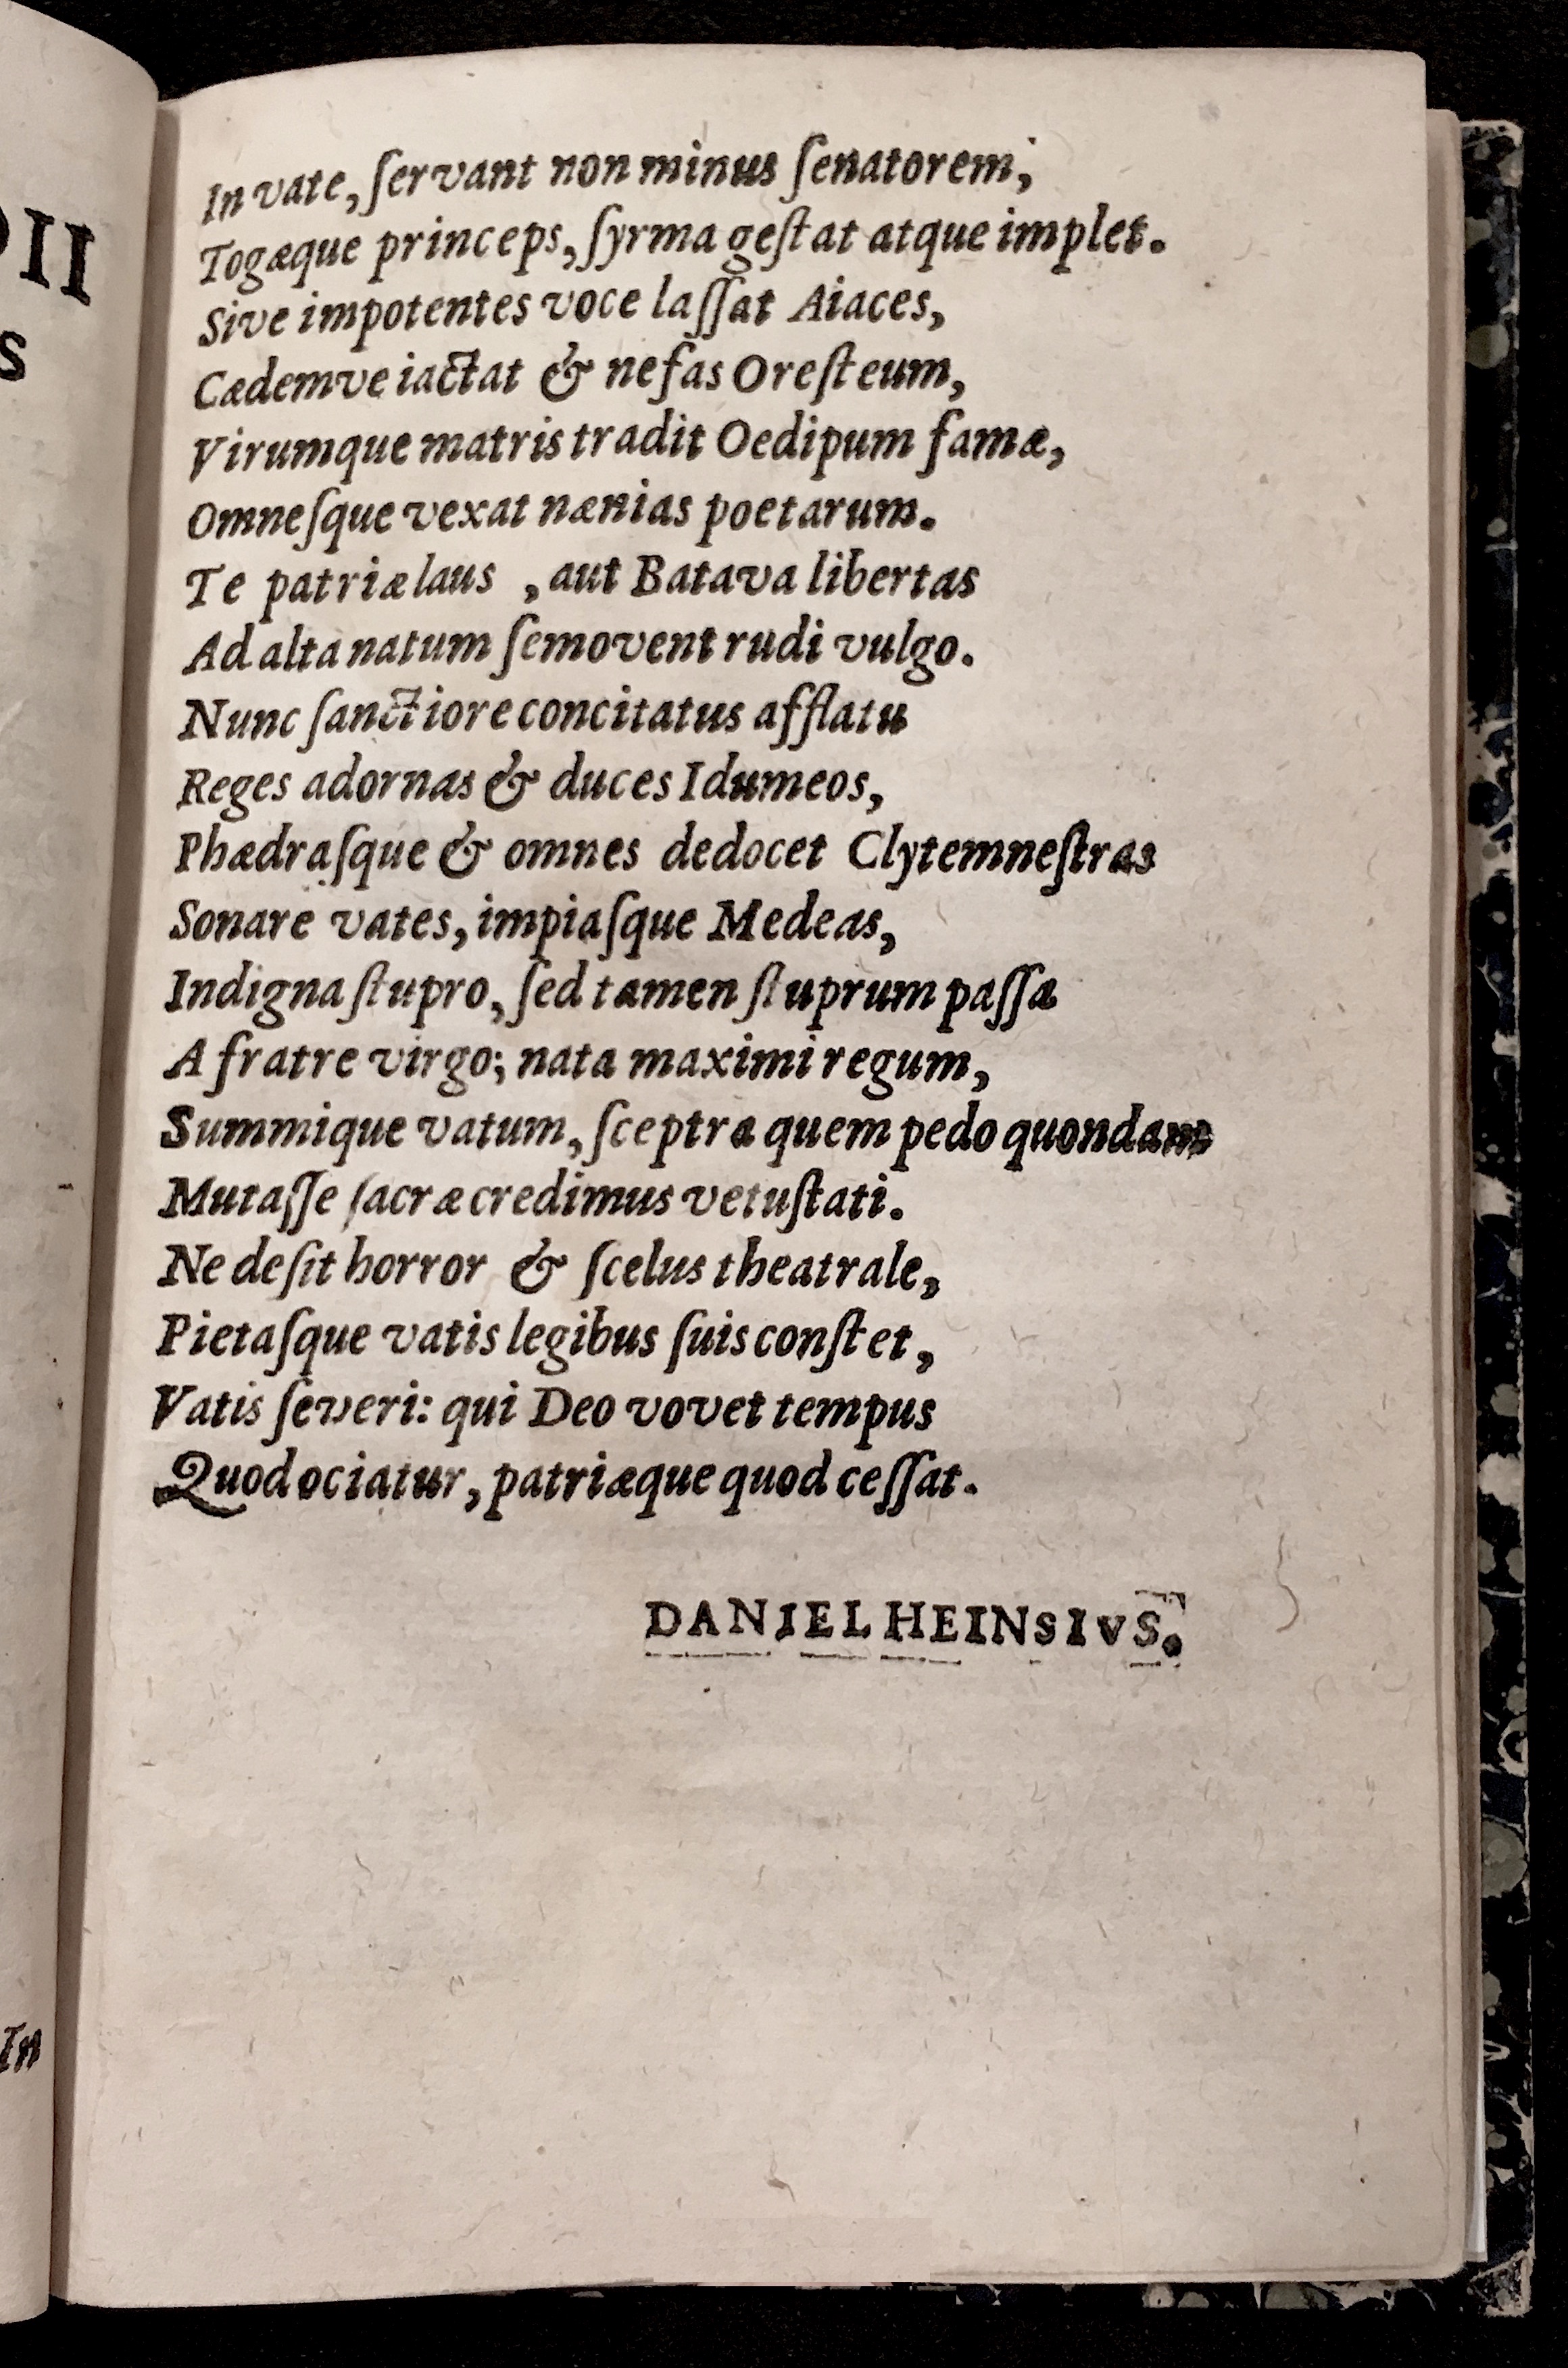 II
S
In
In vate, ſervant non minus ſenatorem,
Togæque princeps, ſyrma geſtat atque implet.
Sive impotentes voce laſſat Aiaces,
Cædemve iactat & nefas Oreſteum,
Virumque matris tradit Oedipum famæ,
Omneſque vexat nænias poetarum.
Te patriæ laus , aut Batava libertas
Ad alta natum ſemovent rudi vulgo.
Nunc ſanctiore concitatus afflatu
Reges adornas & duces Idumeos,
Phædraſque & omnes dedocet Clytemneſtras
Sonare vates, impiaſque Medeas,
Indigna ſtupro, ſed tamen ſtuprum paſſa
A fratre virgo; nata maximi regum,
Summique vatum, ſceptra quem pedo quondam
Mutaſſe ſacræ credimus vetuſtati.
Ne deſit horror & ſcelus theatrale,
Pietaſque vatis legibus ſuis conſtet,
Vatis ſeveri: qui Deo vovet tempus
Quod ociatur, patriæque quod ceſſat.
DANIEL HEINSIVS.